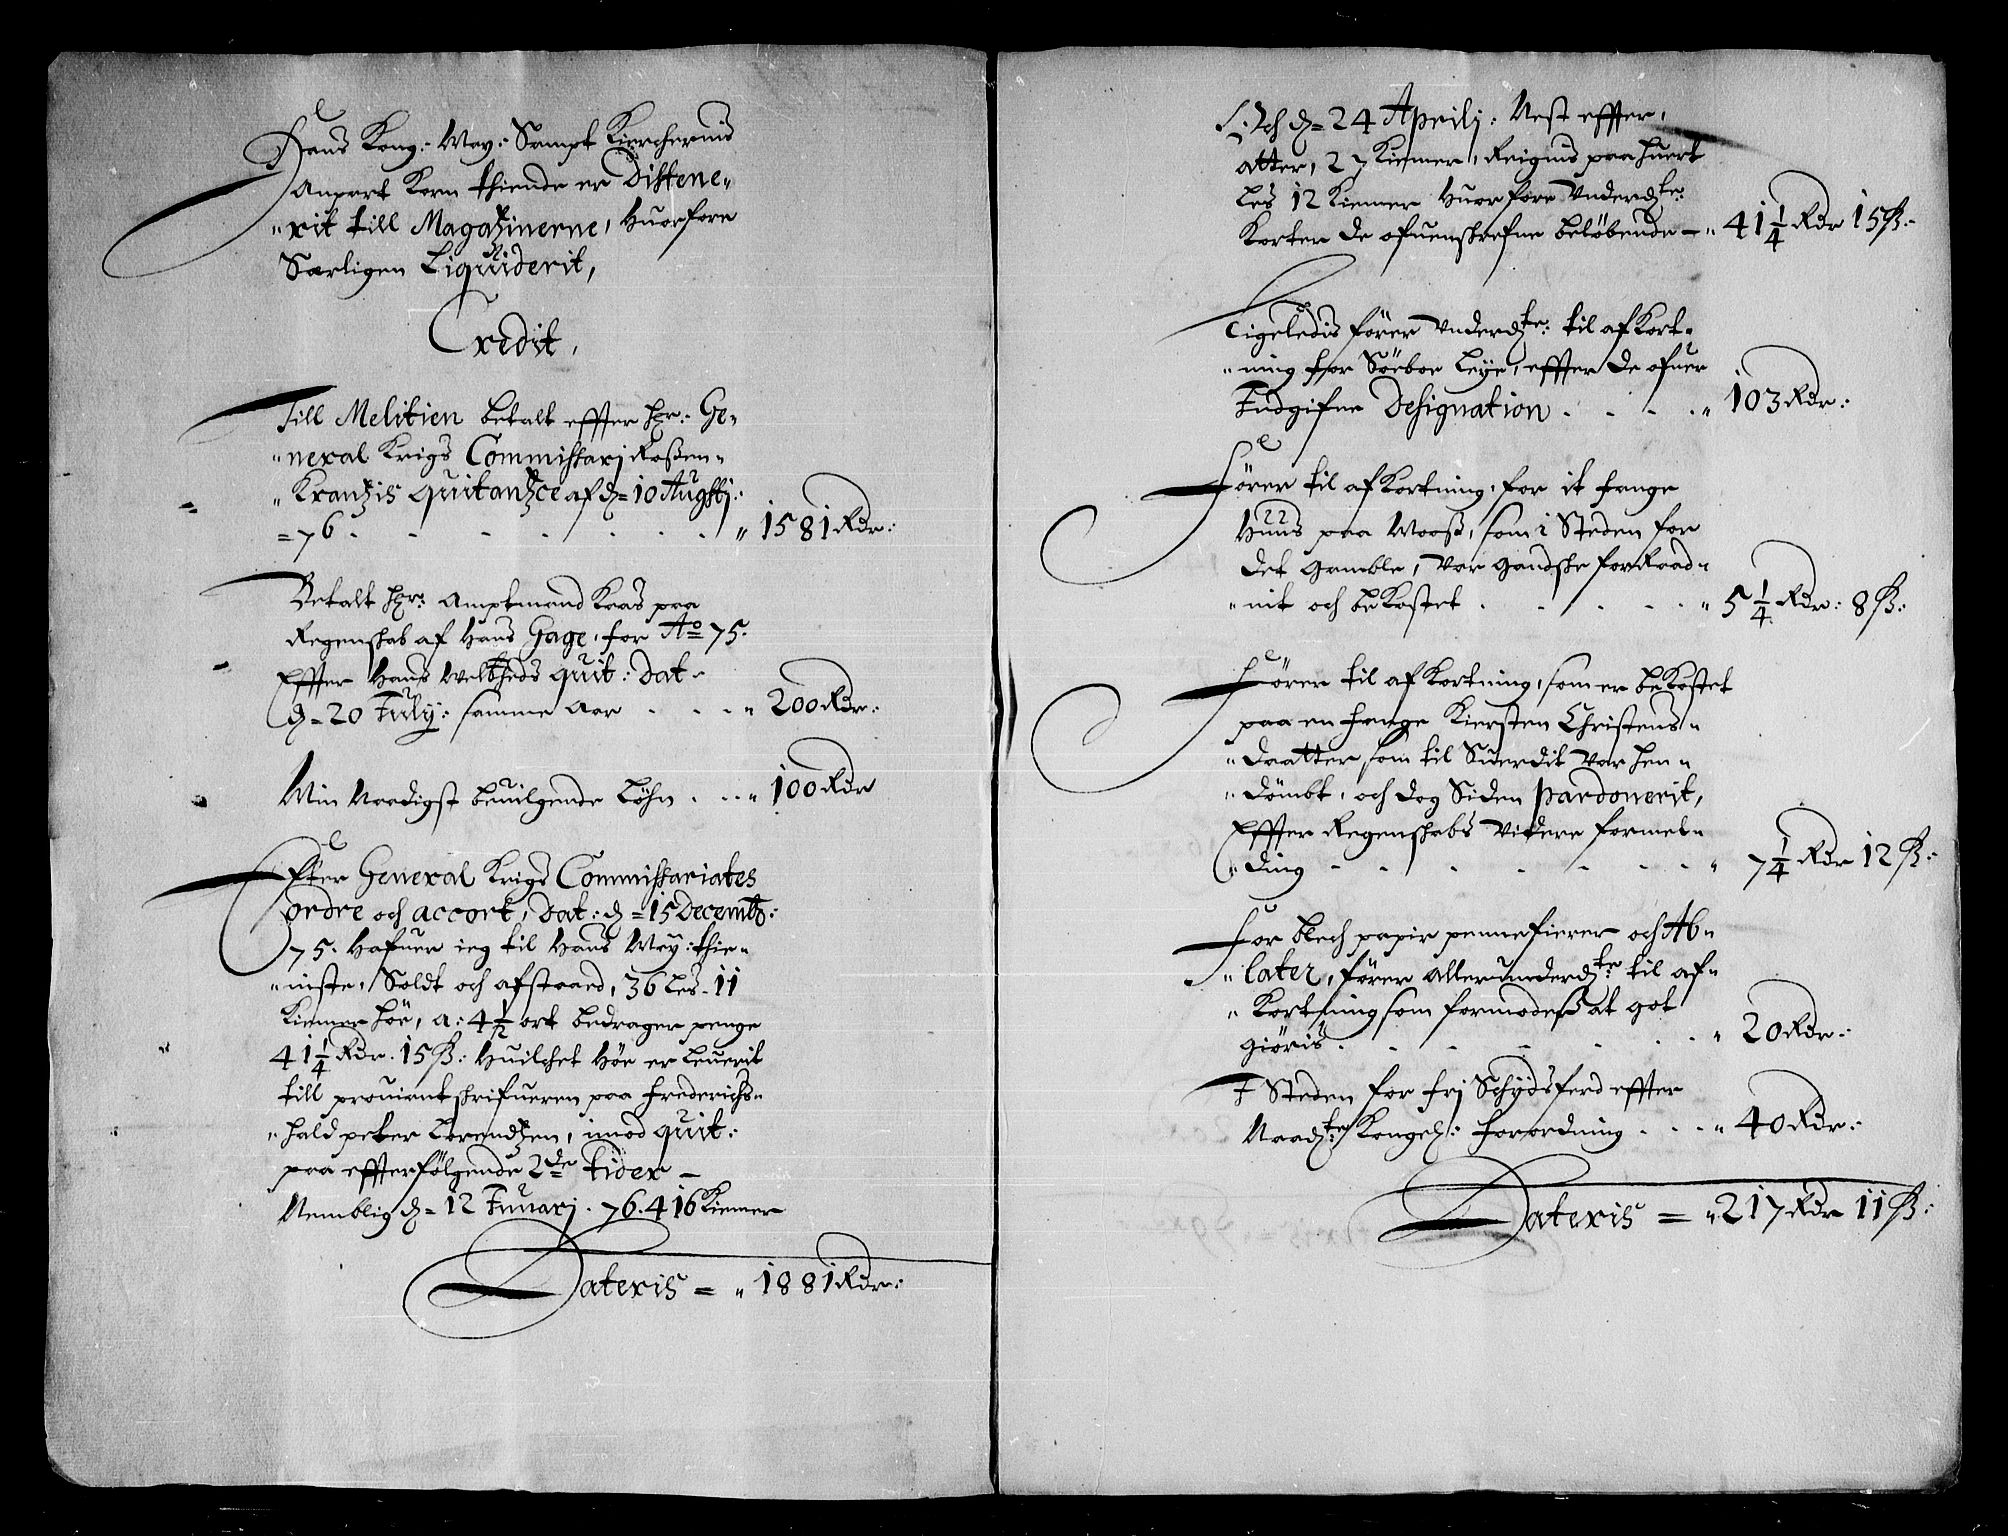 Hans Kong: May: Sampt Kierchernis
Anpart Korn thiende er Distene-
"rit till Magatzinerne, Huorfore
Særligen Liquiderit,
Credit,
Till Melitien betalt effter hr: Ge-
"neral Krigs Commissarj Roßen-
"Krantzis quitantzce af d= 10 Augustj:
=76 . . . . . . " 1581 Rdr:
Betalt hr: Amptmand Kaas paa
Regenskab af Hans Gage, for Ao 75.
Effter Hans Welbheds quit: dat-
d= 20 Julÿ: samme Aar . . . " 200 Rdr:
Min Naadigst beuilgende Löhn . . . " 100 Rdr
Efter General Krigs Commissariates
ordre och accort, dat: d= 15 Decembr:
75. Hafuer ieg til Hans May: thie-
"niste, Soldt och afstaaed, 36 Les - 11
Kiemer höe, a: 4½ ort bedrager penge
41¼ Rdr. 15 ß: Huilchet Höe er leuerit
till prouiantskrifueren paa Frederichs-
"hald peter Lorendtzen, imod quit:
paa effterfölgende 2de tider -
Nemblig d= 12 Januarj. 76. 416 Kiemer
Lateris = " 1881 Rdr:
Och d= 24 Aprilj: Nest effter,
atter, 27 Kiemer, Reignis paa huert
Les 12 Kiemer Huorfore Underdte:
Korter de ofuenskrefne belöbende - " 41¼ Rdr 15 ß:
Ligeledis förer Underdte: til af Kort-
"ning for Söeboe Leÿe, effter de ofuer
Indgifne Designation . . . . " 103 Rdr:
Förer til af Kortning, for it fange
Huus paa Mooß, som i Steden for
det gamble, Var gandske forRaad-
"nit och be Kostet . . . . . " 5¼ Rdr: 8 ß:
Förer til af Kortning, som er beKostet
paa en fange Kiersten Christens-
"daatter som til Suerdit var hen-
"dömbt, och dog Siden pardonerit,
Effter Regenskabs Videre formel-
"ding - - - - - - " 7¼ Rdr 12 ß:
For blech papir pennefierer och Ab-
"later, förer allerunderdte til af-
"Kortning som formodeß at got
giöris . . . . . . " 20 Rdr:
I Steden for frj Schÿdsferd effter
Naadte: Kongel: forordning . . . . " 40 Rdr:
Lateris = " 217 Rdr 11 ß: